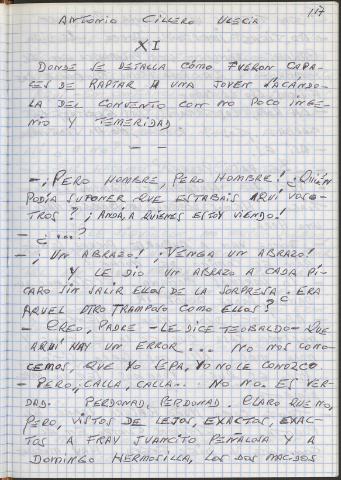 117
ANTONIO CILLERO ULECIA
XI
DONDE SE DETALLA CÓMO FUERON CAPA-
CES DE RAPTAR A UNA JOVEN SACÁNDO-
LA DEL CONVENTO CON NO POCO INGE-
NIO Y TEMERIDAD.
— —
— ¡PERO HOMBRE, PERO HOMBRE! ¿QUIÉN
PODÍA SUPONER QUE ESTABAIS AQUÍ VOSO-
TROS? ¡ANDA, A QUIENES ESTOY VIENDO!
— ¿...?
— ¡UN ABRAZO! ¡VENGA UN ABRAZO!
Y LE DIO UN ABRAZO A CADA PÍ-
CARO SIN SALIR ELLOS DE LA SORPRESA. ¿ERA
AQUEL OTRO TRAMPOSO COMO ELLOS?
— CREO, PADRE —LE DICE TEOBALDO— QUE
AQUÍ HAY UN ERROR... NO NOS CONO-
CEMOS, QUE YO SEPA, YO NO LE CONOZCO.
— PERO, ¡CALLA, CALLA... NO NO. ES VER-
DAD. PERDONAD, PERDONAD. CLARO QUE NO,
PERO, VISTOS DE LEJOS, EXACTOS, EXAC-
TOS A FRAY JUANCITO PEÑALOSA Y A
DOMINGO HERMOSILLA, LOS DOS MACIDOS